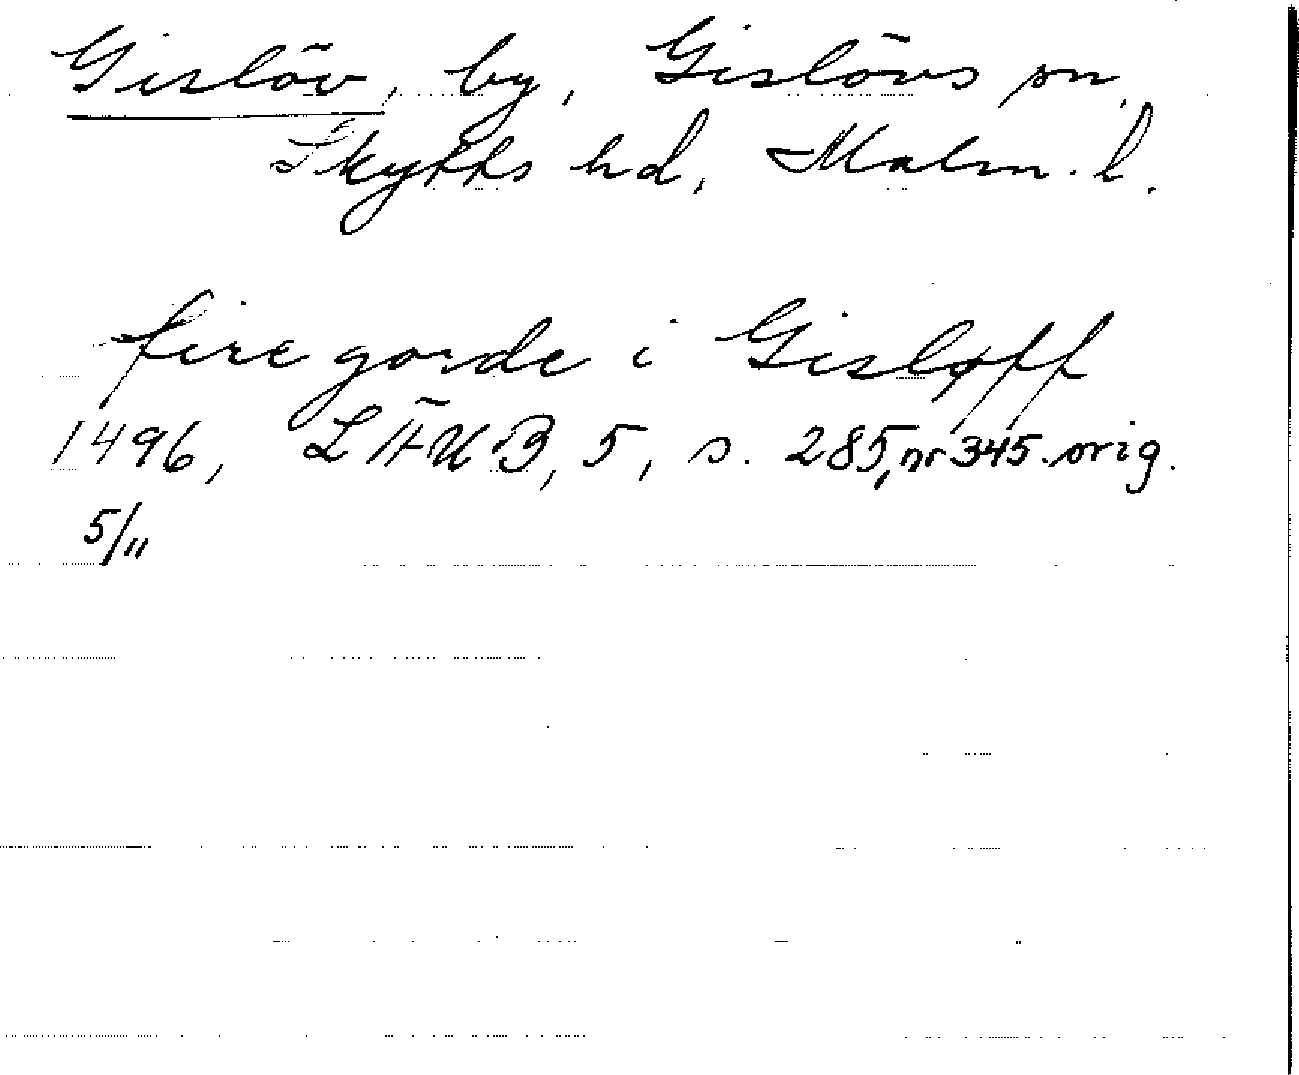 Gislöv, by, Gislövs sn,
Skytts hd, Malm. l.
fire gorde i Gisløff
1496, LÄUB, 5, s. 285, nr 345. orig.
5/11